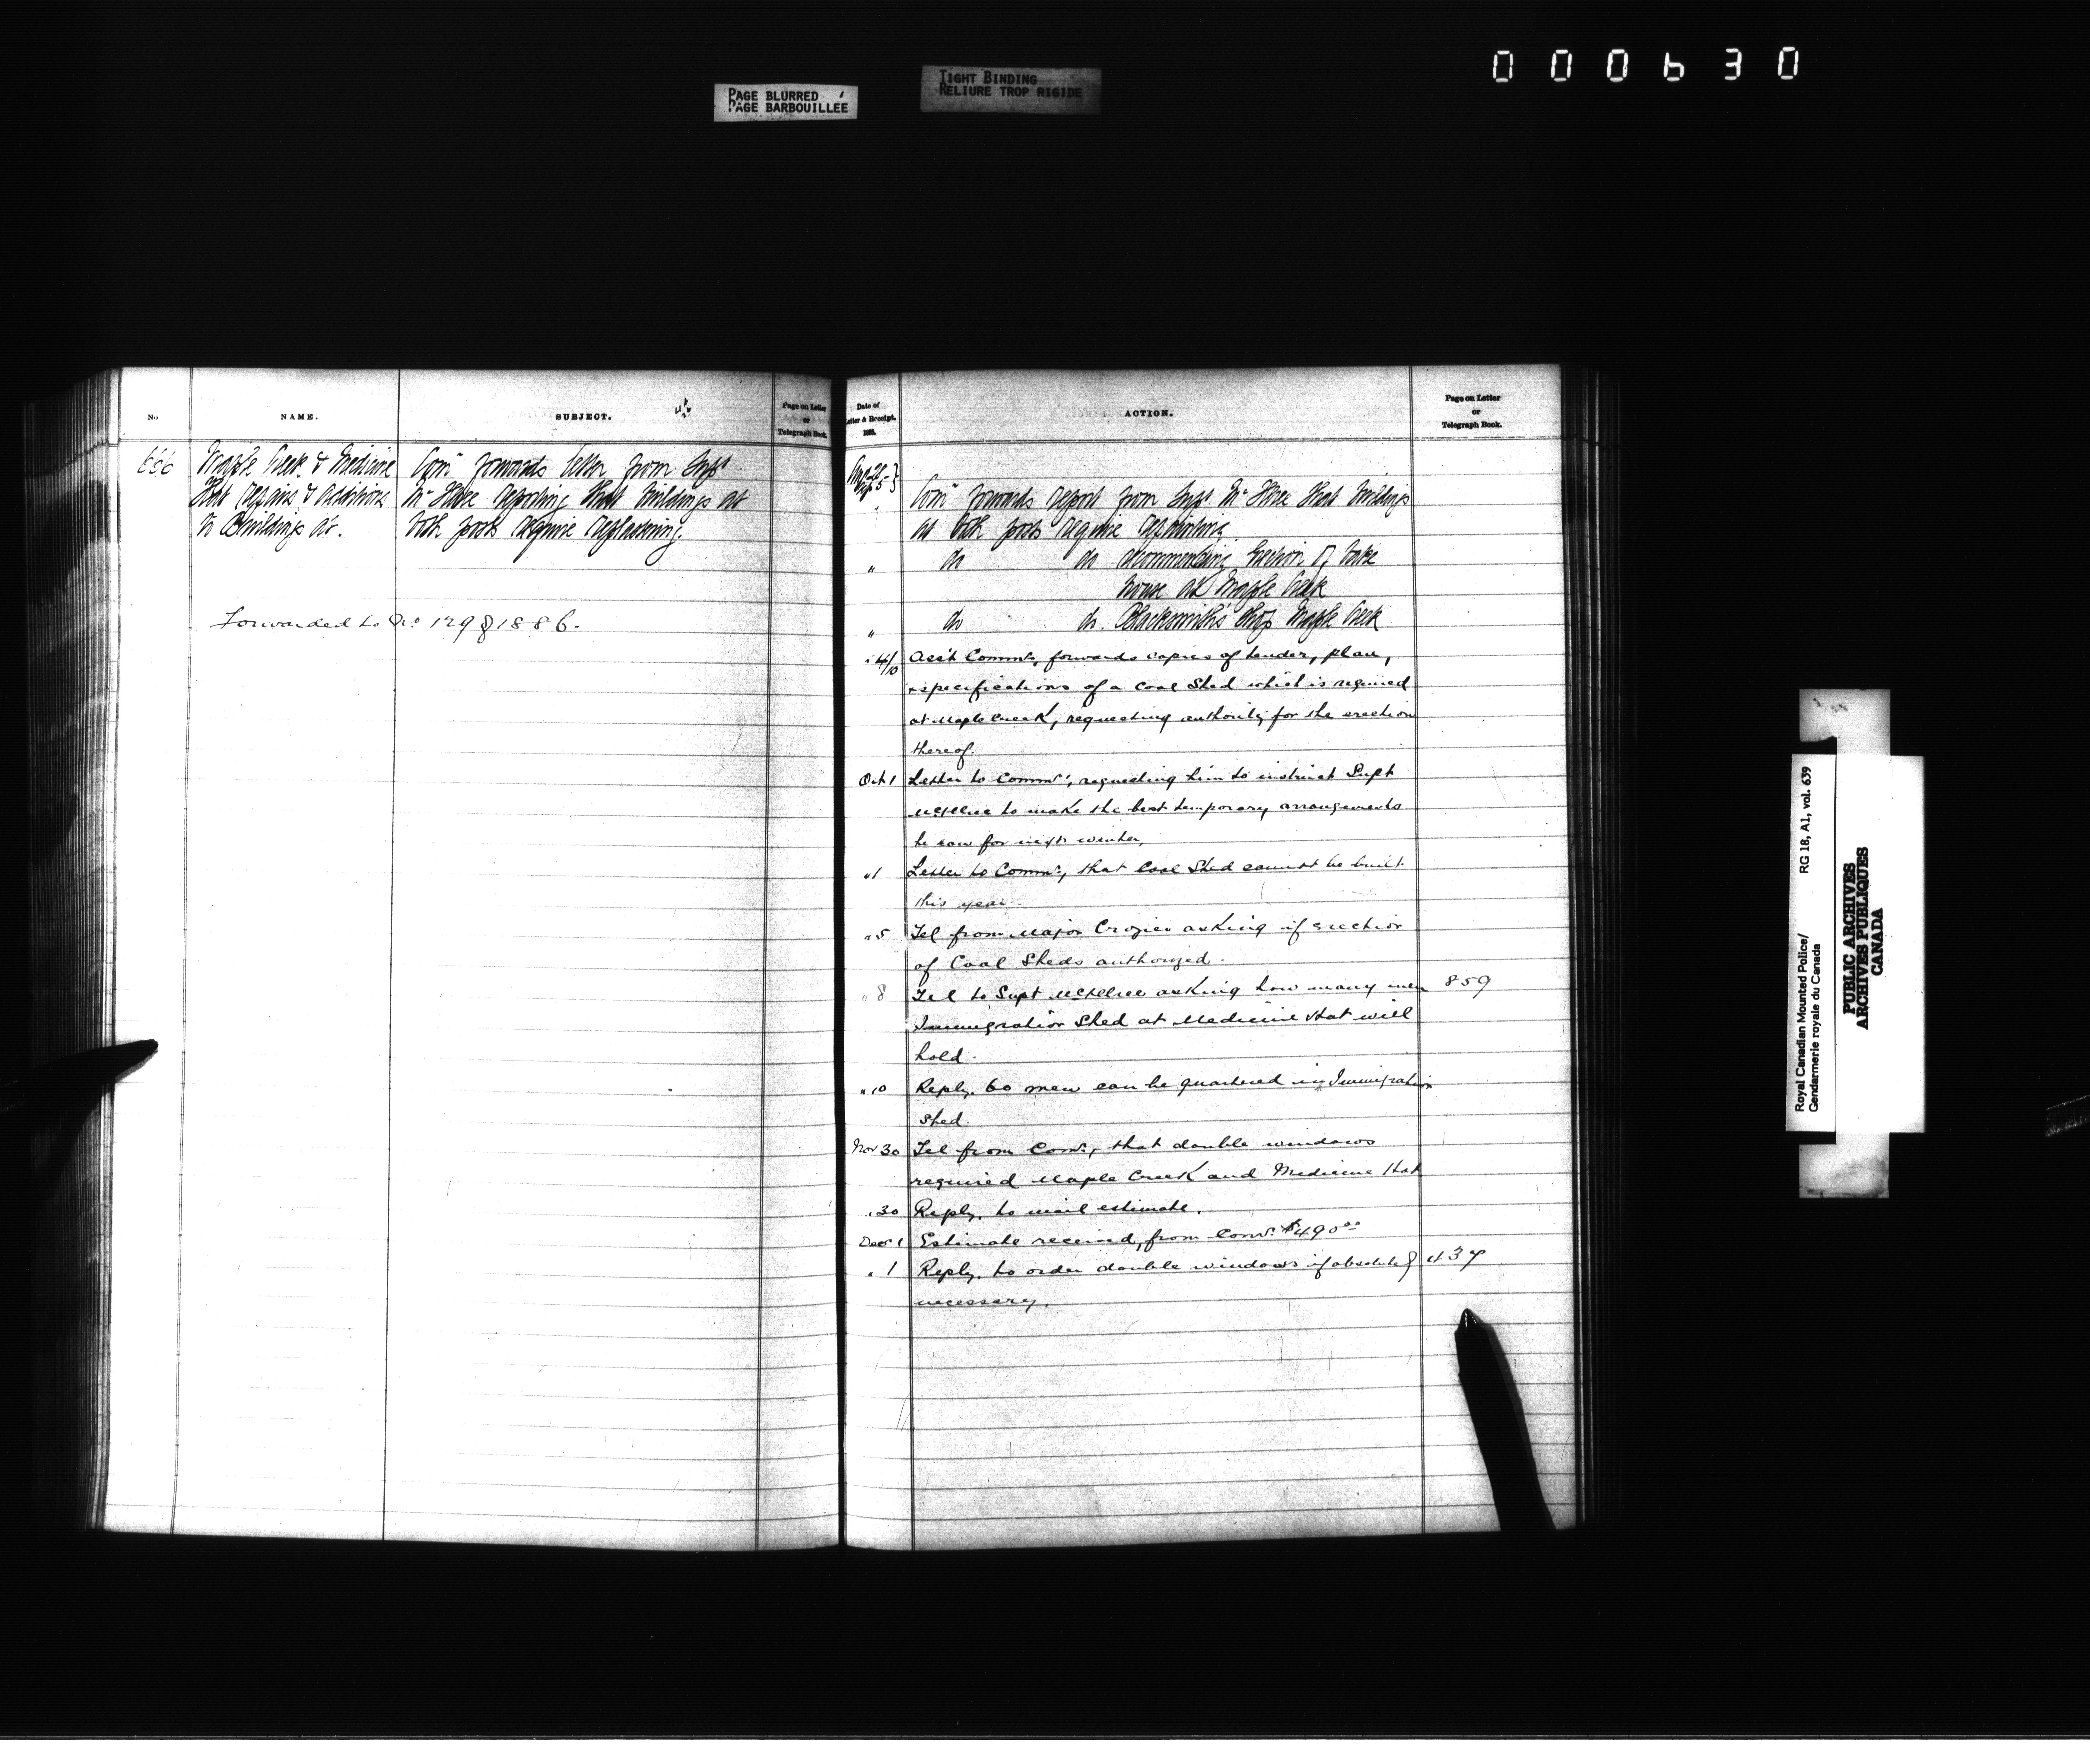 000630
PAGE BLURRED
PAGE BARBOUILLÉE
TIGHT BINDING
RELIURE TROP RIGIDE
No
NAME.
SUBJECT.
Page on Letter
or
Telegraph Book.
656
Maple Creek & Medicine
Hat Repairs & Additions
to Buildings at.
Comr forwards letter from Supt
McIllree reporting that buildings at
both posts require replastering.
Forwarded to No 129 of 1886.
Date of
Letter & Receipt.
1885.
ACTION.
Page on Letter
or
Telegraph Book.
Comr forwards report from Supt McIllree that buildings
at both posts require repainting
" do do recommending erection of bake
house at Maple Creek
" do do. Blacksmith's shop Maple Creek
" 4/10 Ass't Commr, forwards copies of tender, plan,
& specifications of a Coal Shed which is required
at Maple Creek, requesting authority for the erection
thereof.
Oct 1 Letter to Commr, requesting him to instruct Supt
McIllree to make the best temporary arrangements
he can for next winter,
" 1 Letter to Commr, that Coal Shed cannot be built
this year.
" 5 Tel from Major Crozier asking if erection
of Coal Sheds authorized.
" 8 Tel to Supt McIllree asking how many men 859
Immigration Shed at Medicine Hat will
hold.
" 10 Reply. 60 men can be quartered in Immigration
Shed.
Nov 30 Tel from Comr, that double windows
required Maple Creek and Medicine Hat
" 30 Reply, to mail estimate.
Decr 1 Estimate received, from Comr. $490.00
" 1 Reply, to order double windows if absolutely 437
necessary.
Royal Canadian Mounted Police/ RG 18, A1, vol. 639
Gendarmerie royale du Canada
PUBLIC ARCHIVES
ARCHIVES PUBLIQUES
CANADA